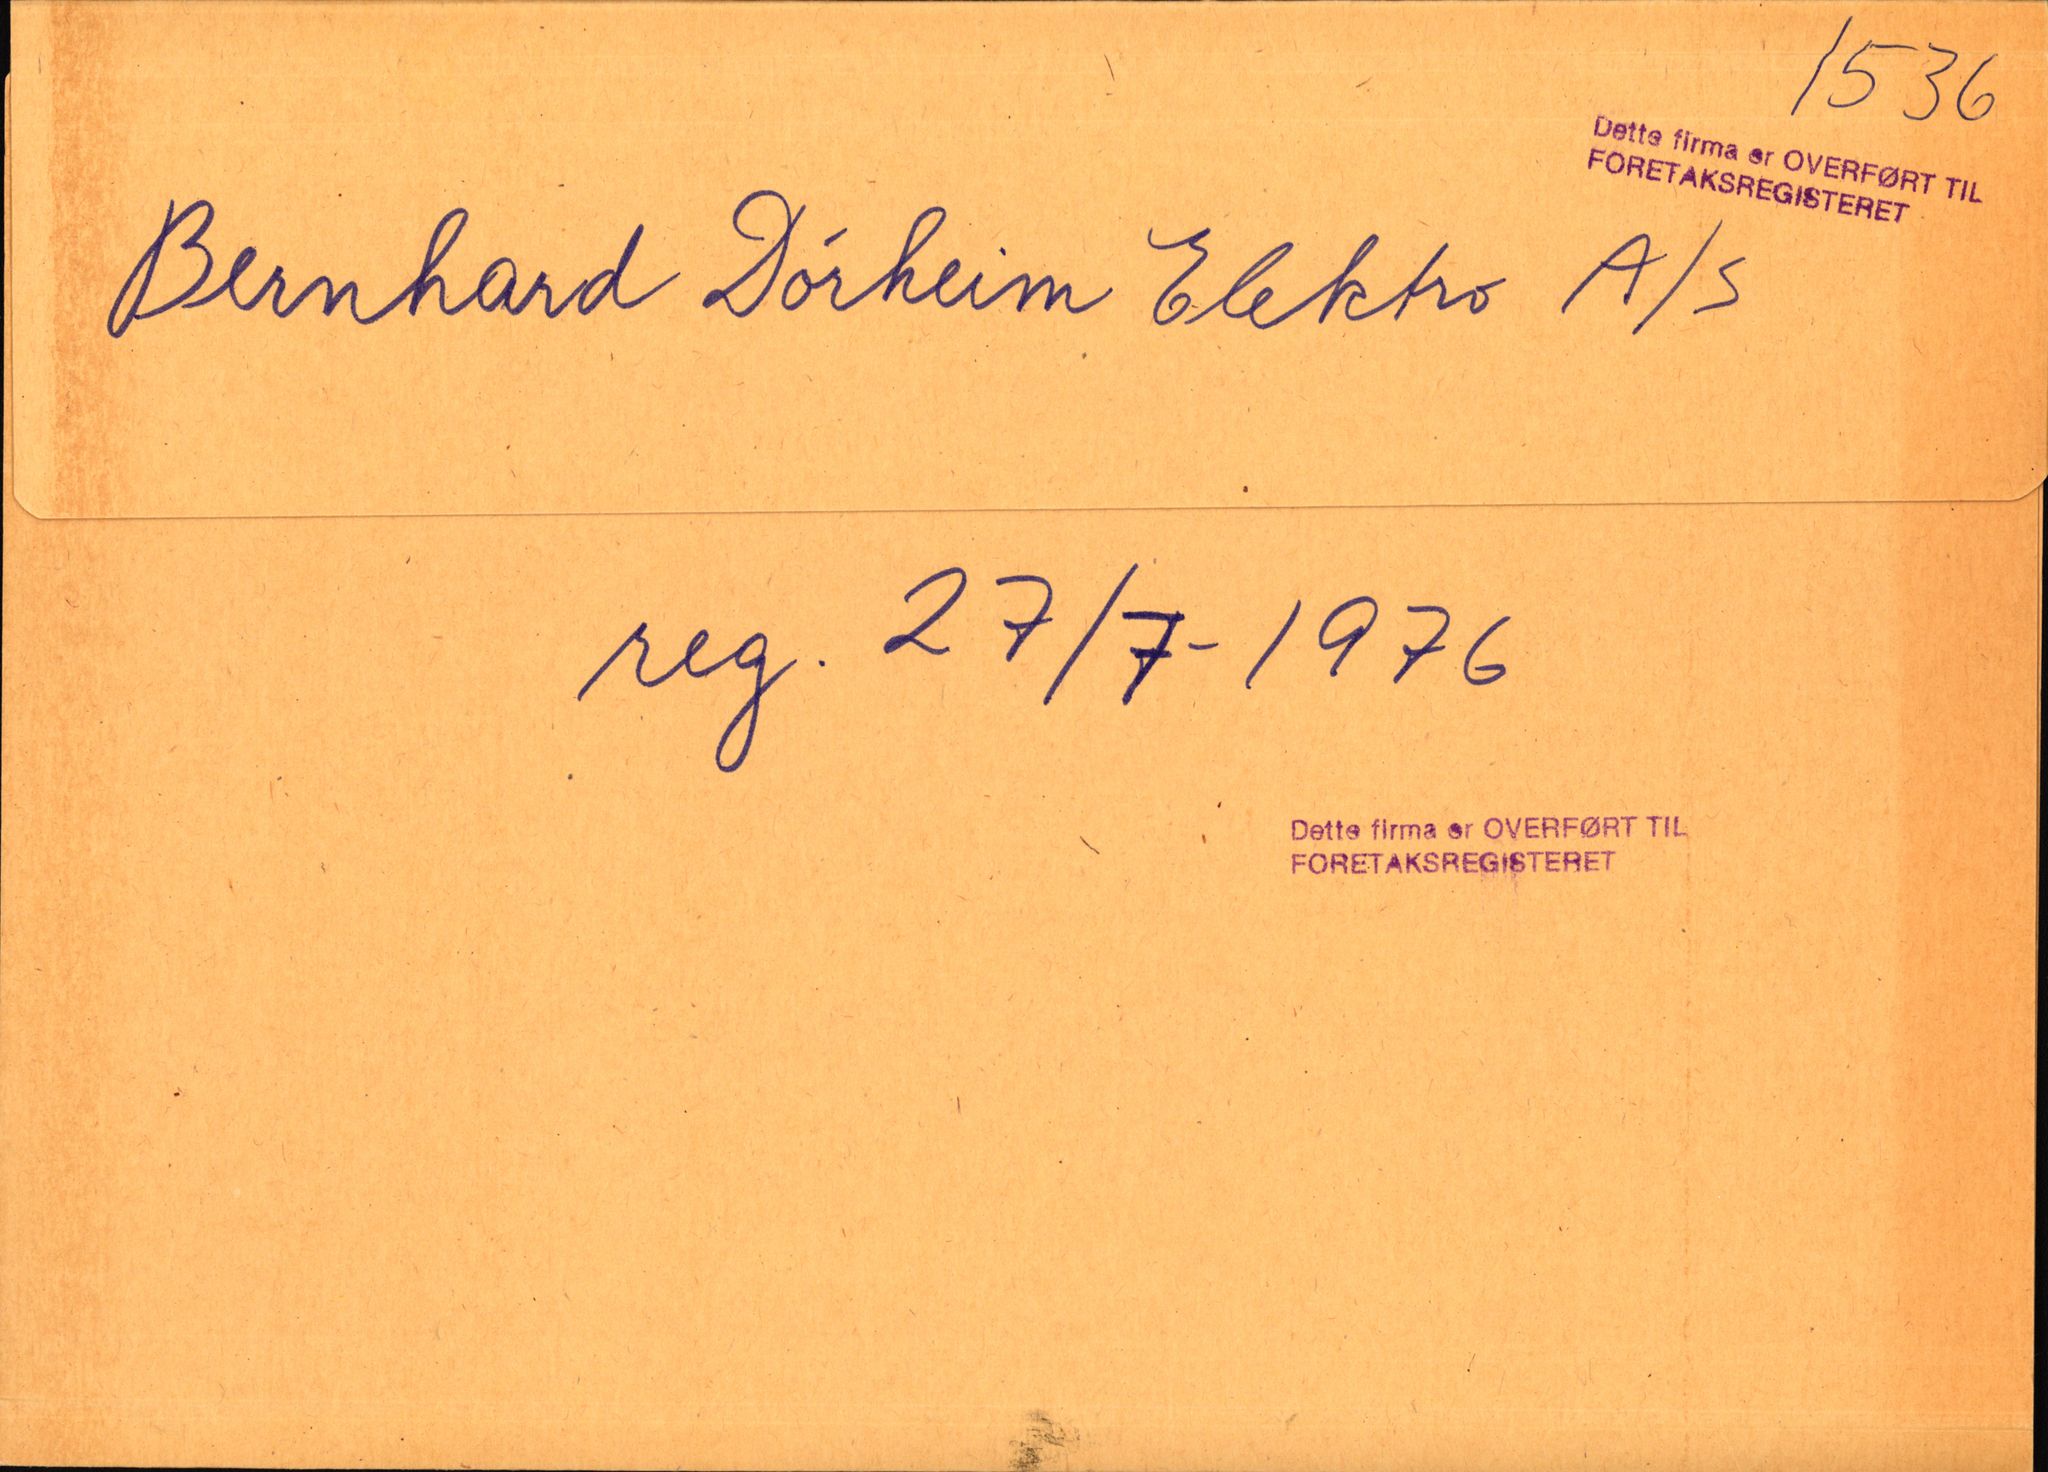 1536
Dette firma er OVERFØRT TIL
FORETAKSREGISTERET
Bernhard Dórheim Elektro A/S
reg. 27/7-1976
Dette firma er OVERFØRT TIL
FORETAKSREGISTERET